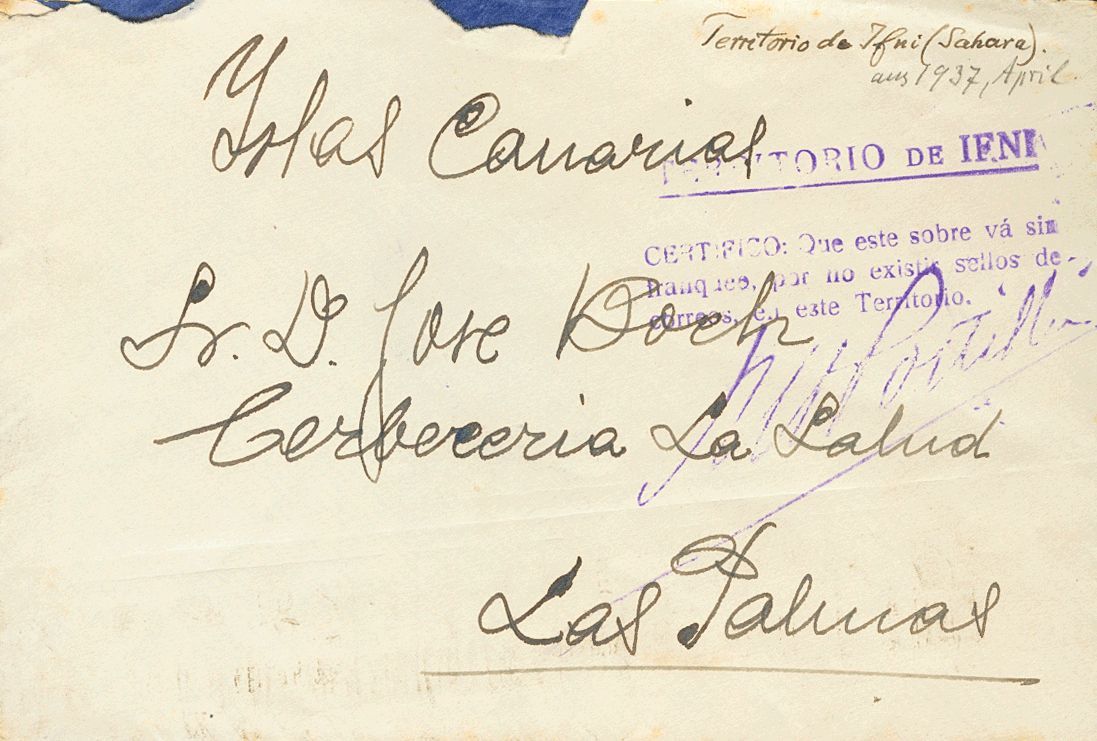 Territorio de Ifni (Sahara).
aus 1937, April
Yslas Canarias
TERRITORIO DE IFNI
CERTIFICO: Que este sobre vá sin
franqueo, por no existir sellos de
correos, en este Territorio.
Sr. D. Jose Doch
Cerbeceria La Salud
Las Palmas